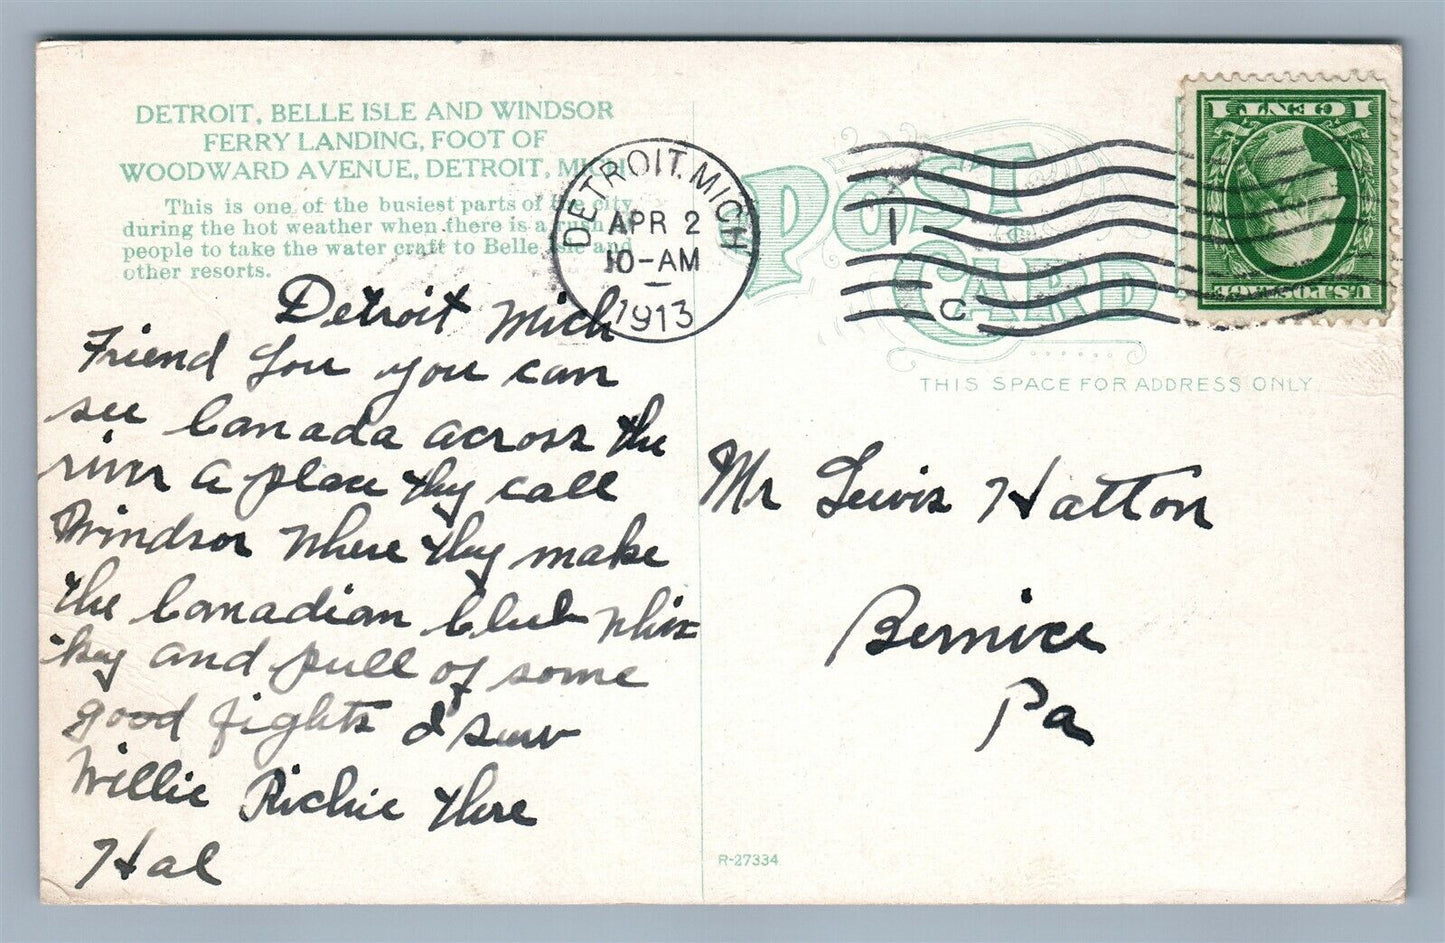 DETROIT, BELLE ISLE AND WINDSOR
FERRY LANDING, FOOT OF
WOODWARD AVENUE, DETROIT, MICH.
This is one of the busiest parts of the city
during the hot weather when there is a rush of
people to take the water craft to Belle Isle and
other resorts.
Detroit Mich
Friend Lou you can
see Canada across the
river a place thy call
Windsor where thy make
the Canadian Club Whis
key and pull of some
good fights I saw
Willie Richie there
Hal
DETROIT, MICH
APR 2
10-AM
1913
1
C
POST
CARD
1 CENT 1
U.S. POSTAGE
THIS SPACE FOR ADDRESS ONLY.
Mr Lewis Hatton
Bernice
Pa
R-27334